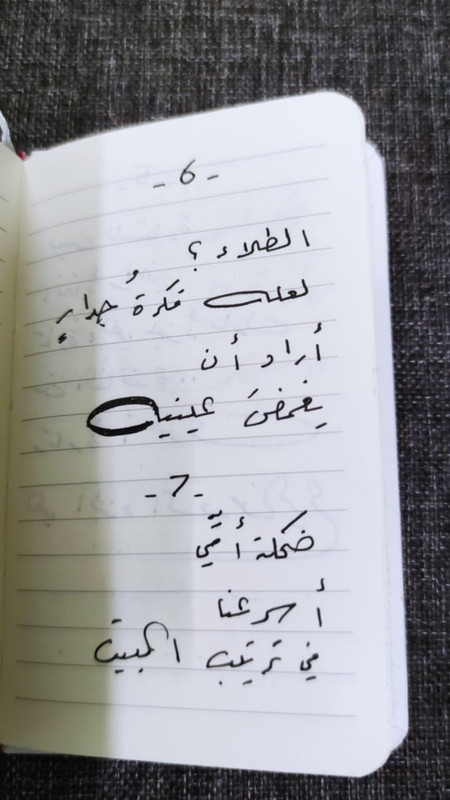 -6-
الطلاء ؟
لعله فكرةُ جدارٍ
أراد أن
يغمضَ عينيه
-7-
ضحكة أمّي
أسرعنا
في ترتيب البيت